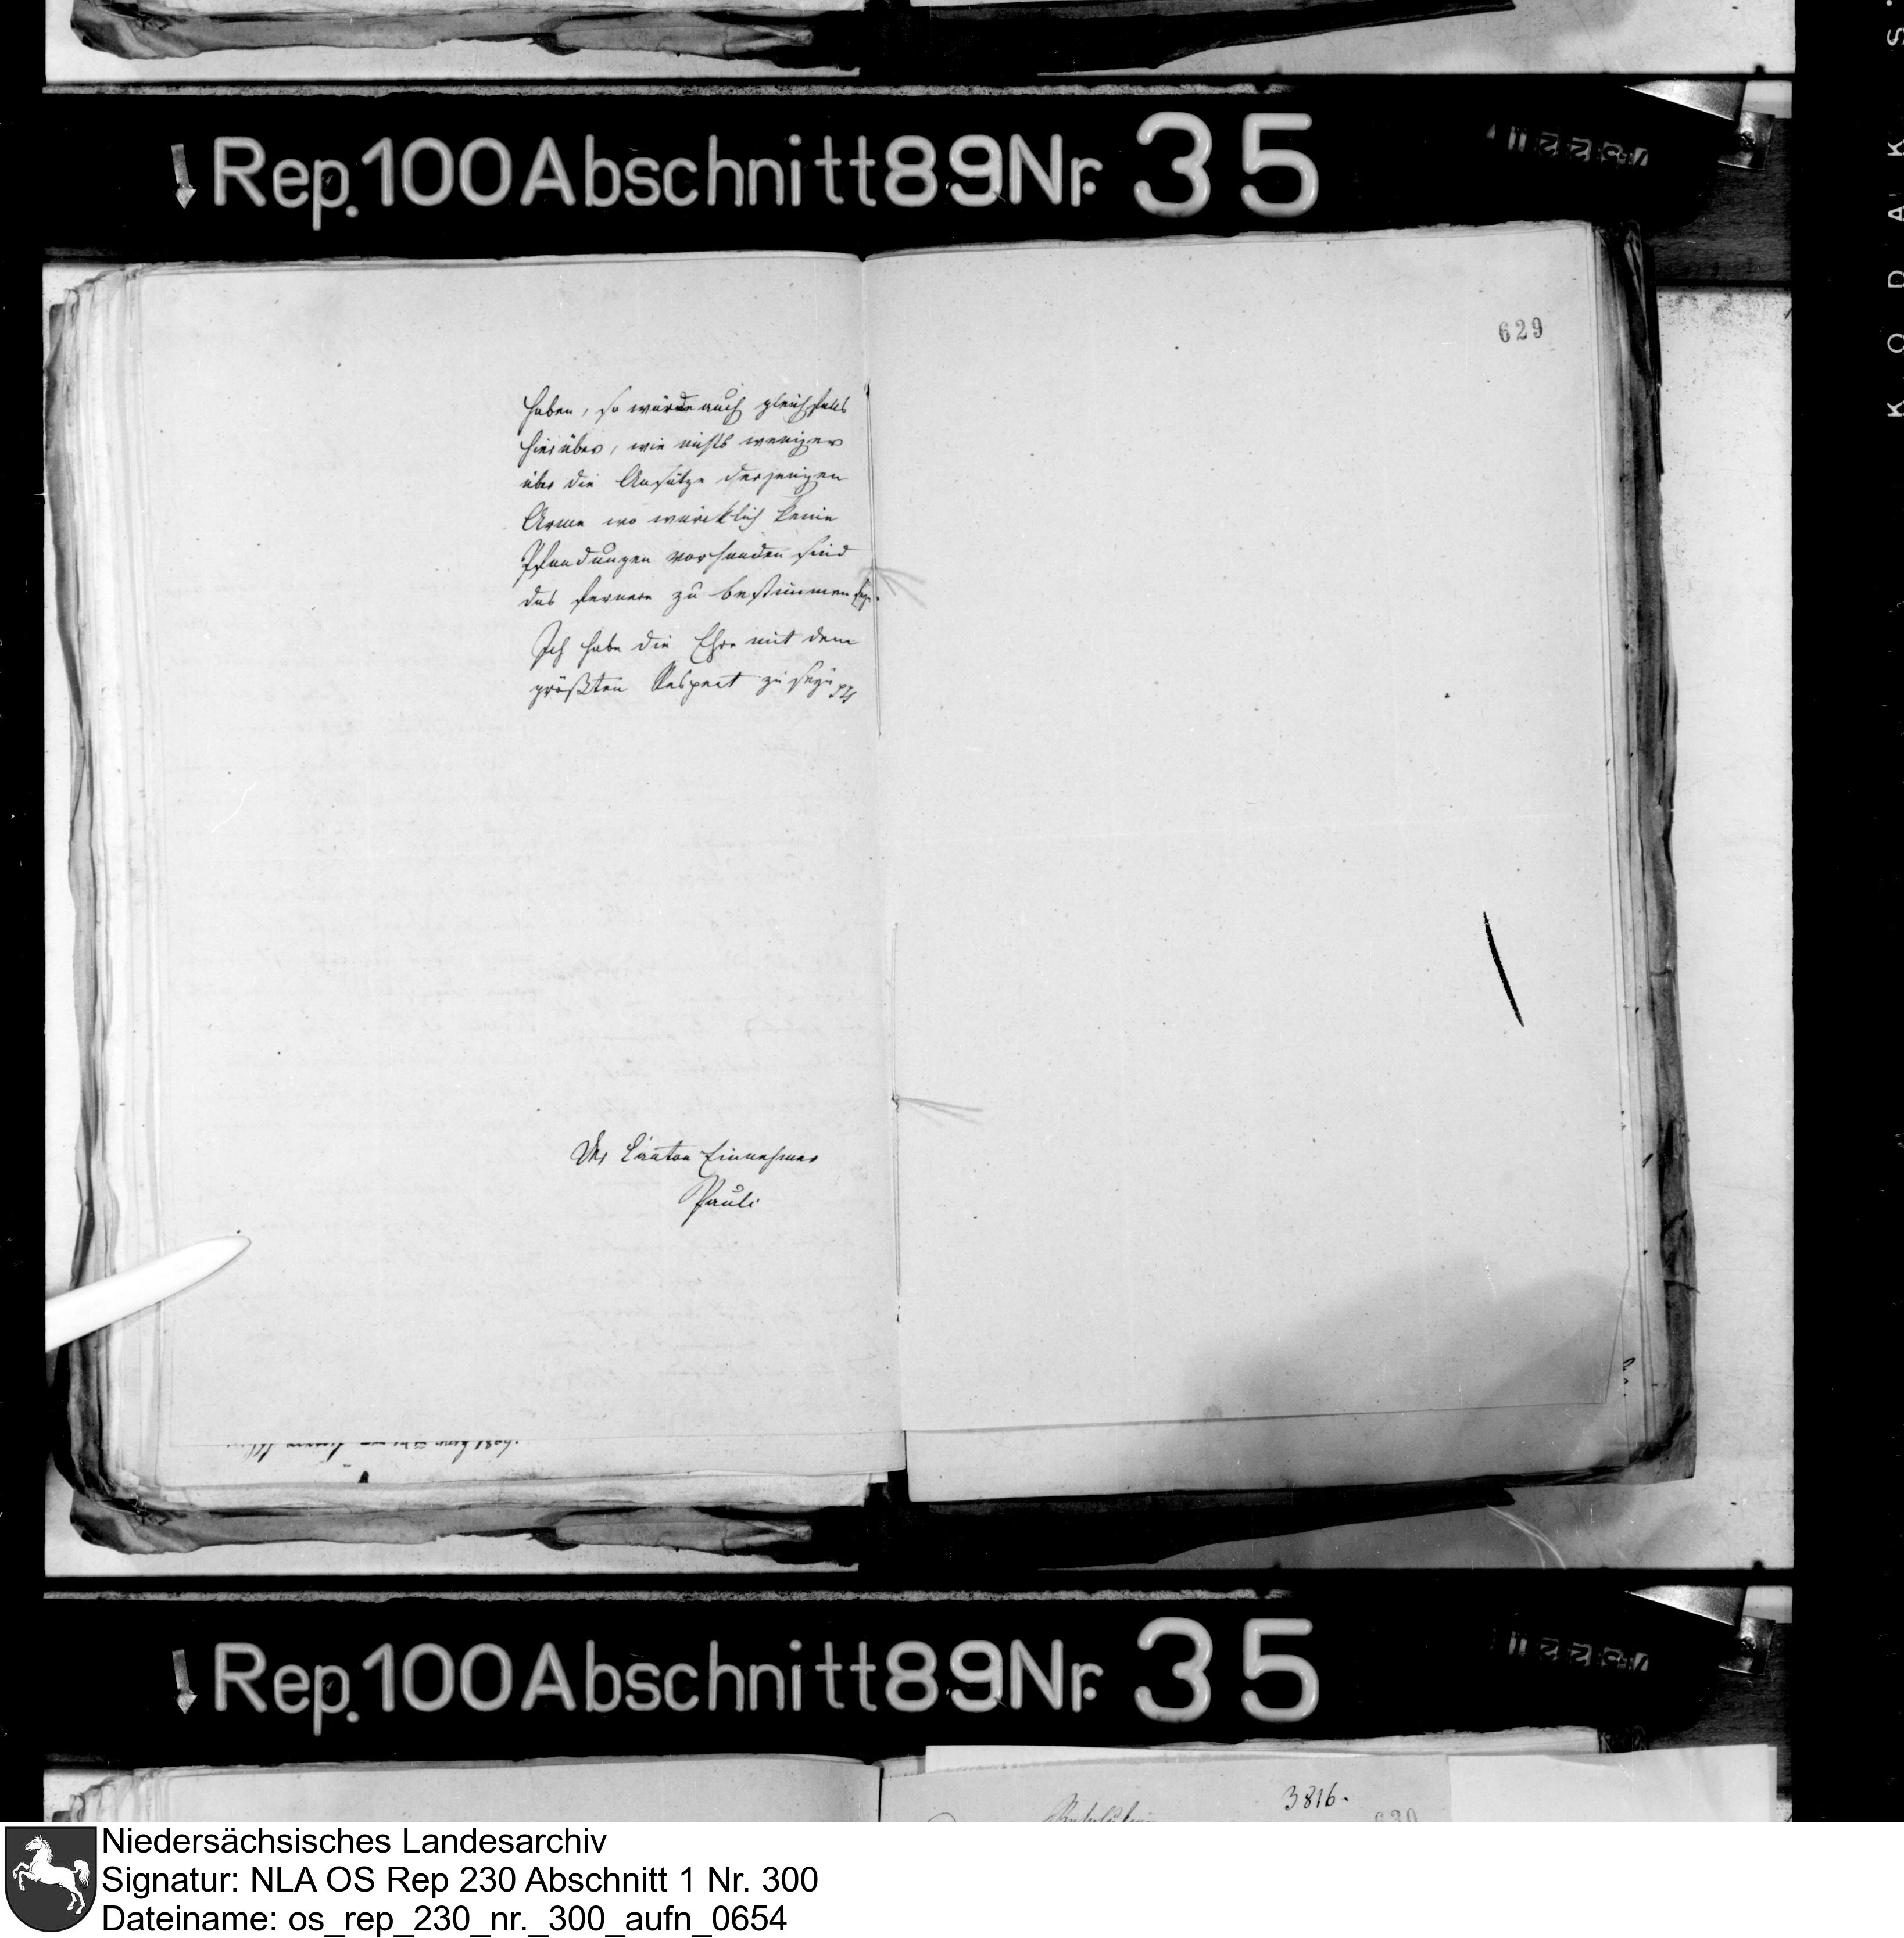 Rep. 100 Abschnitt 89 Nr. 35
629
haben, so würde auch gleichfals
hierüber, wie nicht weniger
über die Ansätze derjenigen
Arme wo würcklich keine
Pfandungen vorhanden sind
das fernere zu bestimmen seyn.
Ich habe die Ehre mit dem
größten Respect zu seyn
Der Canton Einnehmer
Pauli
Rep. 100 Abschnitt 89 Nr. 35
3816.
630
KODAK S
Niedersächsisches Landesarchiv
Signatur: NLA OS Rep 230 Abschnitt 1 Nr. 300
Dateiname: os_rep_230_nr._300_aufn_0654